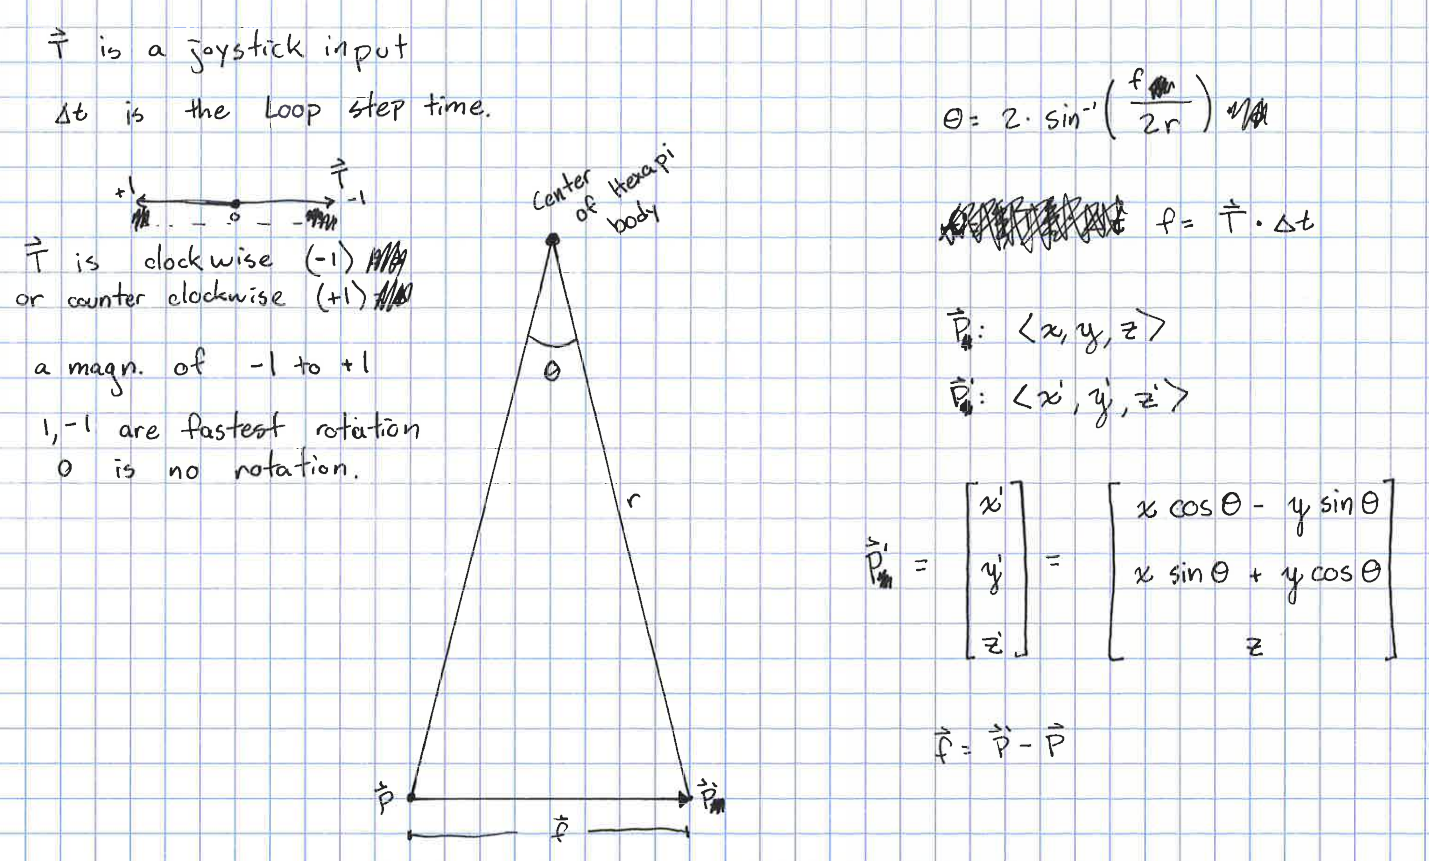 T⃗ is a joystick input
Δt is the Loop step time.
+1 0 -1 T⃗
T⃗ is clockwise (-1)
or counter clockwise (+1)
a magn. of -1 to +1
1,-1 are fastest rotation
0 is no rotation.
Center
of Hexapi
body
θ
r
P⃗ P⃗'
f⃗
θ = 2 · sin⁻¹ ( f / 2r )
f = T⃗ · Δt
P⃗: <x, y, z>
P⃗': <x', y', z'>
P⃗' = [x' y' z'] = [x cosθ - y sinθ
x sinθ + y cosθ
z]
f⃗ = P⃗' - P⃗